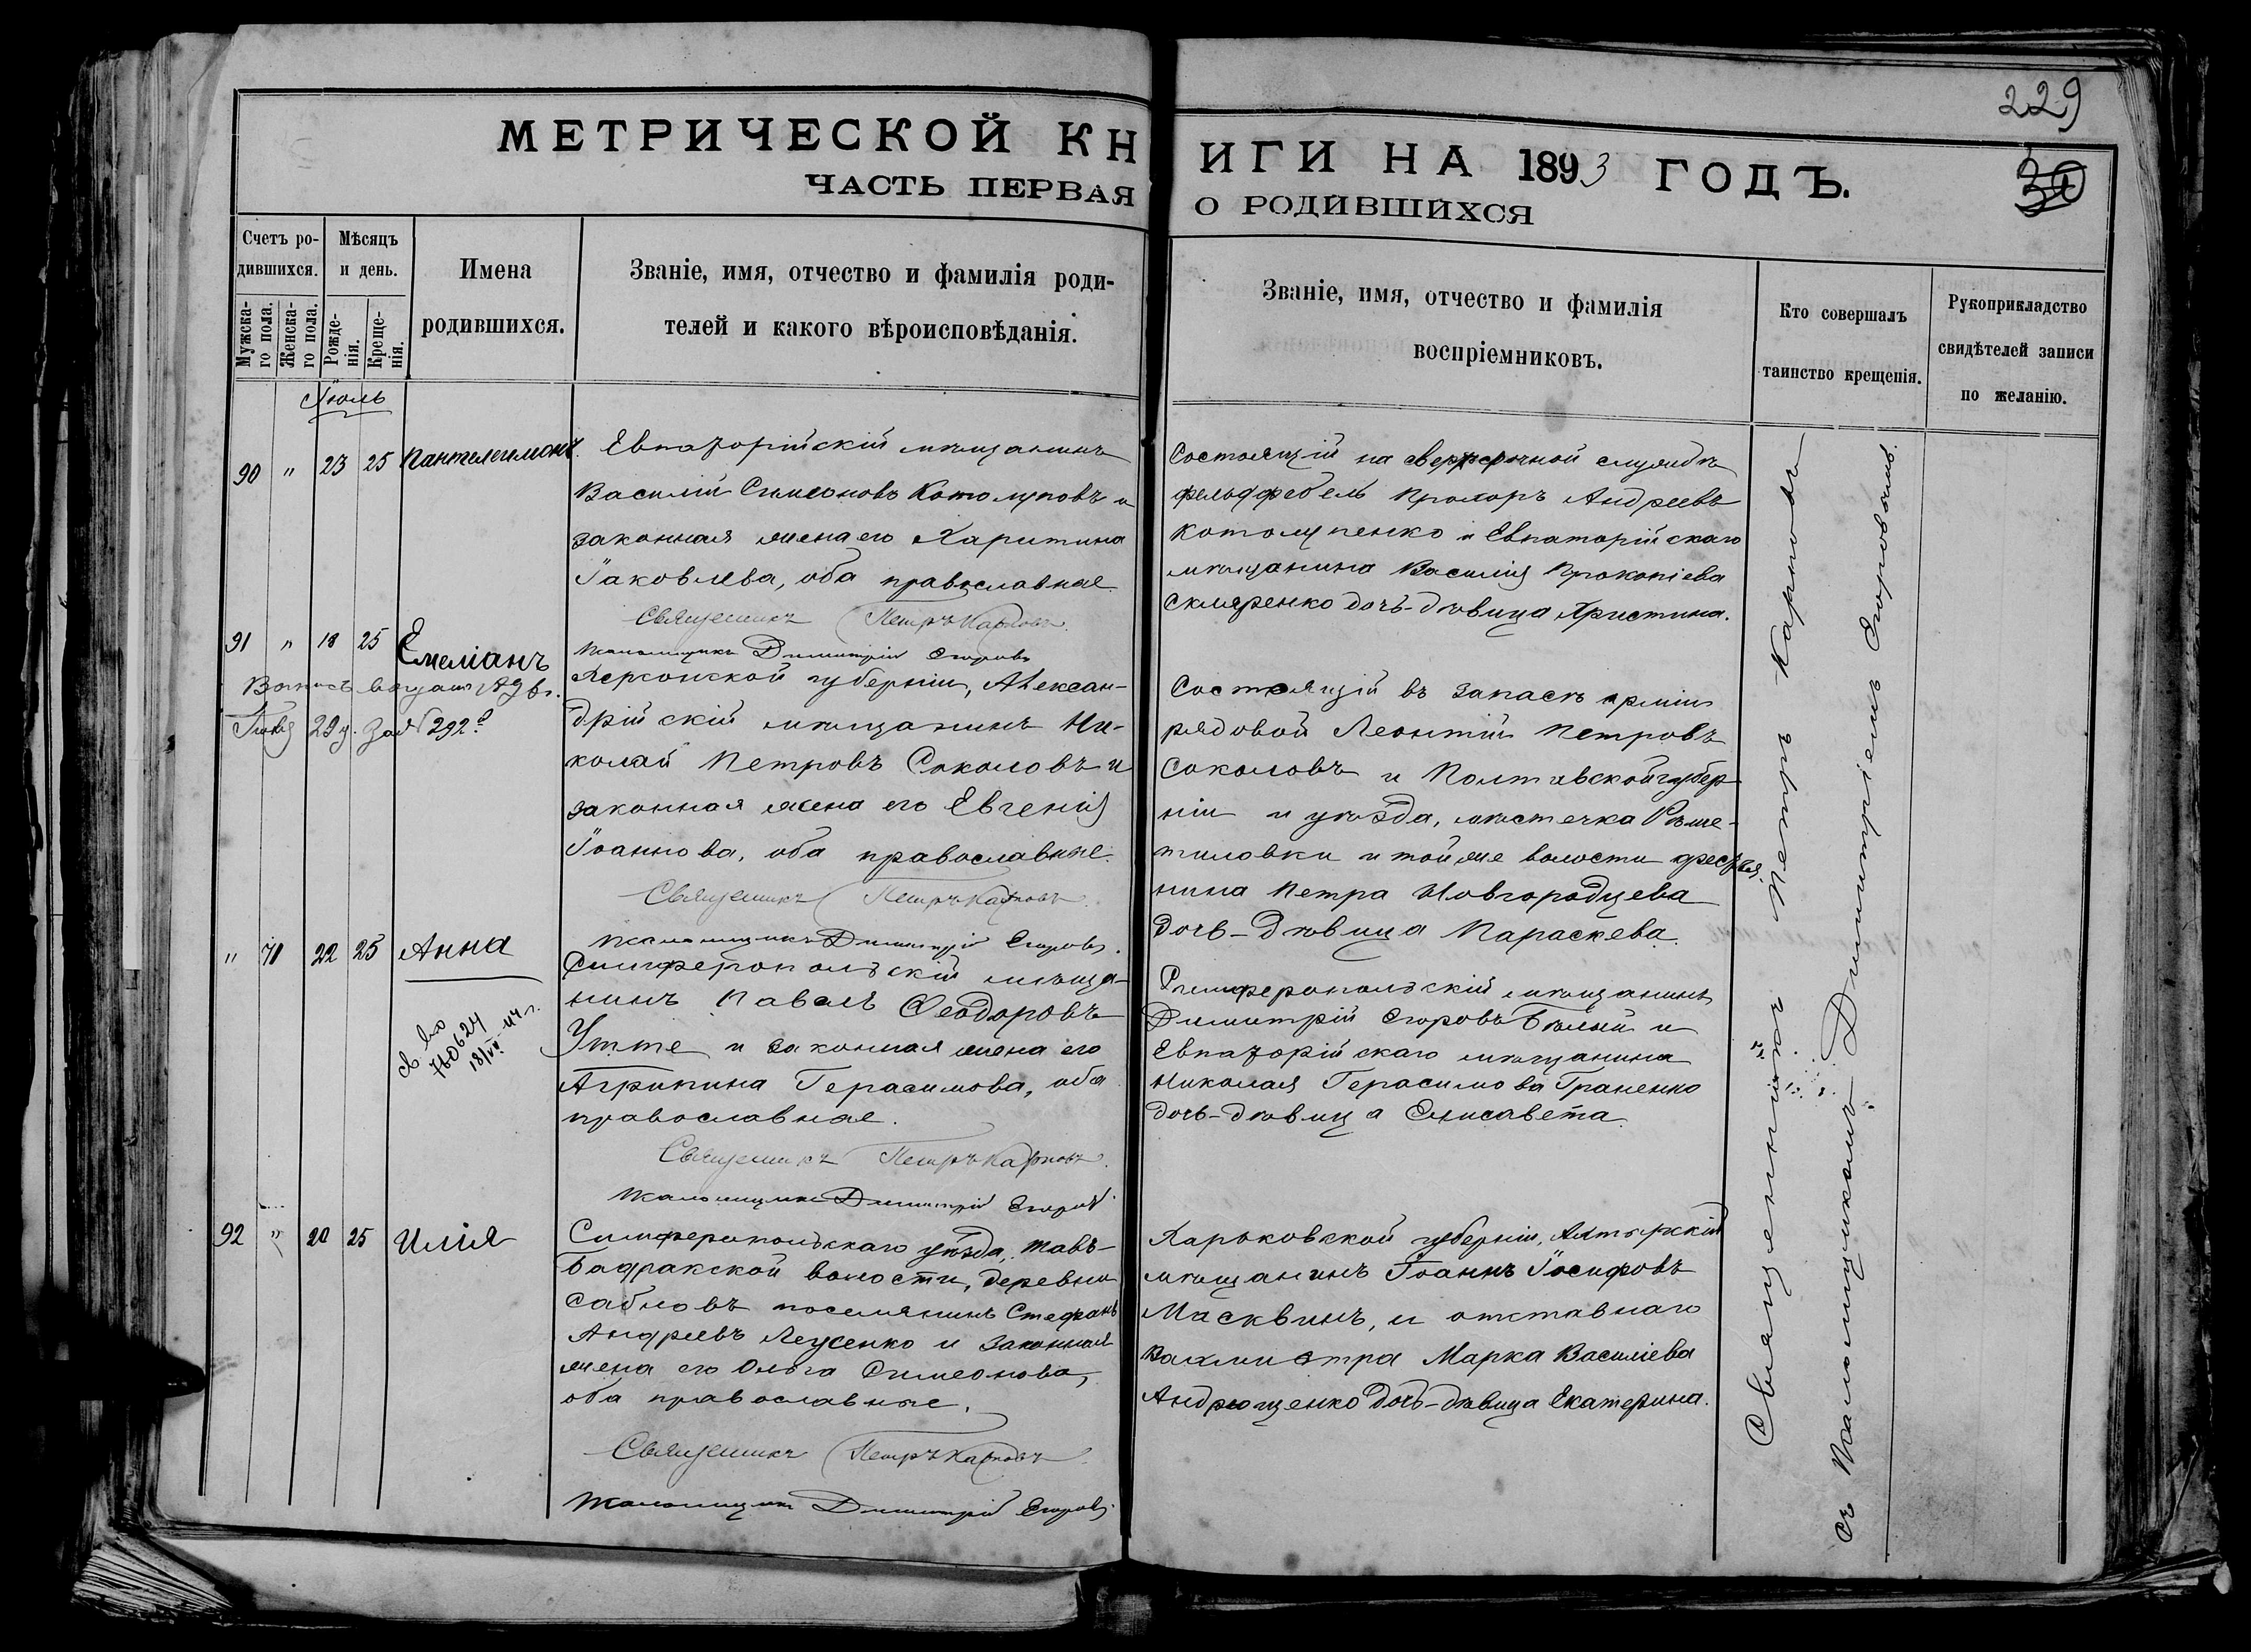 229
МЕТРИЧЕСКОЙ КНИГИ НА 1893 ГОДЪ.
30
ЧАСТЬ ПЕРВАЯ О РОДИВШИХСЯ
Счетъ ро-
дившихся.
Мужска-
го пола.
Женска-
го пола.
Мѣсяцъ
и день.
Рожде-
нія.
Креще-
нія.
Имена
родившихся.
Званіе, имя, отчество и фамилія роди-
телей и какого вѣроисповѣданія.
Званіе, имя, отчество и фамилія
воспріемниковъ.
Кто совершалъ
таинство крещенія.
Рукоприкладство
свидѣтелей записи
по желанію.
Іюль
90 " 23 25 Пантелеимонъ.
Евпаторійскій мѣщанинъ
Василій Симеоновъ Котолуповъ и
законная жена его Харитина
Іаковлева, оба православные.
Священникъ Петръ Карповъ.
Псаломщикъ Димитрій Егоровъ
Состоящій на сверхсрочной службѣ
фельдфебель Прохоръ Андреевъ
Котолупенко и Евпаторійскаго
мѣщанина Василія Прокопіева
Скляренко дочь-дѣвица Христина.
91 " 18 25 Емеліанъ
29 за № 292
Херсонской губерніи, Алексан-
дрійскій мѣщанинъ Ни-
колай Петровъ Соколовъ и
законная жена его Евгенія
Іоаннова, оба православные.
Священникъ Петръ Карповъ.
Псаломщикъ Димитрій Егоровъ.
Состоящій въ запасѣ арміи
рядовой Леонтій Петровъ
Соколовъ и Полтавской губер-
ніи и уѣзда, мѣстечка Рѣше-
тиловки и той же волости крестья-
нина Петра Новгородцева
дочь-дѣвица Параскева.
" 71 22 25 Анна
760624
18/VI-44 г.
Симферопольскій мѣща-
нинъ Павелъ Ѳеодоровъ
Утте и законная жена его
Агрипина Герасимова, оба
православные.
Священникъ Петръ Карповъ.
Псаломщикъ Димитрій Егоровъ
Симферопольскій мѣщанинъ
Димитрій Егоровъ Бѣлый и
Евпаторійскаго мѣщанина
Николая Герасимова Граненко
дочь-дѣвица Елисавета.
92 " 20 25 Илія
Симферопольскаго уѣзда, Тавъ-
Бадракской волости, деревни
поселянинъ Стефанъ
Андреевъ Леусенко и законная
жена его Ольга Симеонова,
оба православные.
Священникъ Петръ Карповъ.
Псаломщикъ Димитрій Егоровъ.
Харьковской губерніи, Ахтырскій
мѣщанинъ Іоаннъ Іосифовъ
Масквинъ, и отставнаго
вахмистра Марка Василіева
Андрющенко дочь-дѣвица Екатерина.
Священникъ Петръ Карповъ
съ Псаломщикомъ Димитріемъ Егоровымъ.